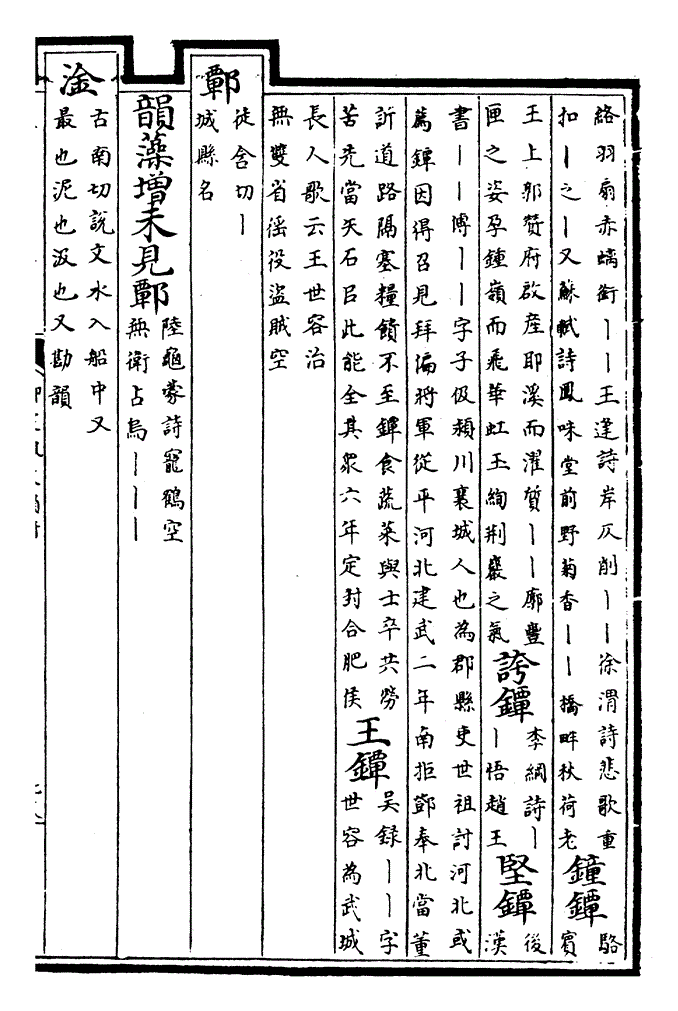 絡羽扇赤螭銜丨丨王逢詩岸仄削丨丨徐渭詩悲歌重
扣丨之丨又蘇軾詩鳳咮堂前野菊香丨丨橋畔秋荷老
鐘鐔
駱
賓
王上鄎贊府啟産耶溪而濯質丨丨廓豐
匣之姿孕鍾嶺而飛華虹玉絢荆巖之氣
誇鐔
李綱詩丨
丨悟趙王
堅鐔
後
漢
書丨丨傅丨丨字子伋潁川襄城人也為郡縣吏世祖討河北或
薦鐔因得召見拜偏將軍從平河北建武二年南拒鄧奉北當董
訢道路隔塞糧饋不至鐔食蔬菜與士卒共勞
苦先當矢石㠯此能全其衆六年定封合肥侯
王鐔
吳録丨丨字
世容為武城
長人歌云王世容治
無雙省徭役盜賊空
𨝸
徒含切丨
城縣名
韻藻增未見𨝸
陸龜蒙詩寵鶴空
無衛占烏丨丨丨
淦
古南切說文水入船中又
最也泥也汲也又勘韻